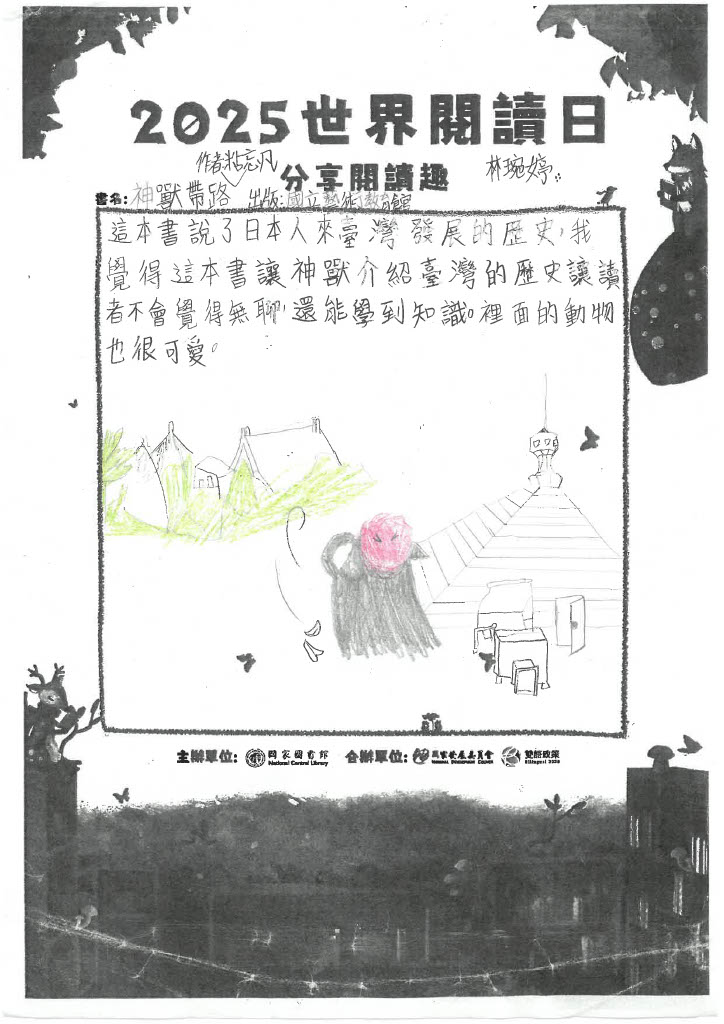 2025世界閱讀日
分享閱讀趣
作者:粘忘凡
林琬婷
書名:神獸帶路 出版:國立藝術教育館
這本書說了日本人來臺灣發展的歷史,我
覺得這本書讓神獸介紹臺灣的歷史讓讀
者不會覺得無聊,還能學到知識。裡面的動物
也很可愛。
主辦單位: 國家圖書館 National Central Library 合辦單位: 國家發展委員會 NATIONAL DEVELOPMENT COUNCIL 雙語政策 Bilingual 2030